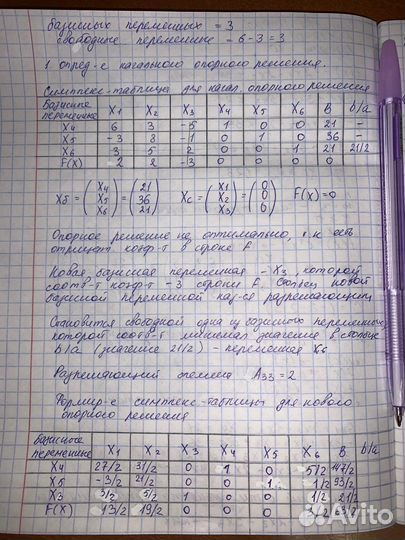 базисных переменных = 3
свободные переменные = 6-3=3
1 опред-е начального опорного решения.
Симплекс-таблица для начал. опорного решения
Базисные переменные X1 X2 X3 X4 X5 X6 B b/a
X4 6 3 -5 1 0 0 21 -
X5 -3 8 -1 0 1 0 36 -
X6 3 5 2 0 0 1 21 21/2
F(X) 2 2 -3 0 0 0 0
Xб = (X4 X5 X6) = (21 36 21) Xс = (X1 X2 X3) = (0 0 0) F(X)=0
Опорное решение не оптимально, т.к есть
отрицат коэф-т в строке F.
Новая базисная переменная - X3, которой
соотв-т коэф-т -3 строки F. Столбец новой
базисной переменной наз-ся разрешающим
Становится свободной одна из базисных переменных
которой соотв-т минимал значение в столбце
b/a (значение 21/2) - переменная X6
Разрешающий элемент A33=2
Формир-е симплекс-таблицы для нового
опорного решения
базисные переменные X1 X2 X3 X4 X5 X6 B b/a
X4 27/2 31/2 0 1 0 5/2 147/2
X5 -3/2 21/2 0 0 1 1/2 93/2
X3 3/2 5/2 1 0 0 1/2 21/2
F(X) 13/2 19/2 0 0 0 3/2 63/2
Avito